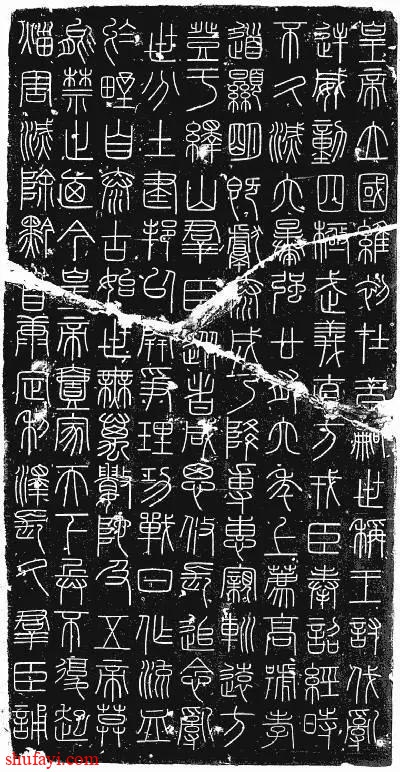 皇帝立國維初在昔嗣世稱王討伐亂
逆威動四極武義直方戎臣奉詔經時
不久滅六暴強廿有六年上薦高號孝
道顯明既獻泰成乃降專惠寴輑遠方
登于繹山羣臣從者咸思攸長追念亂
世分土建邦以開爭理功戰日作流血
於野自泰古始世無萬數陀及五帝莫
能禁止廼今皇帝壹家天下兵不復起
災害滅除黔首康定利澤長久羣臣誦
shufayi.com